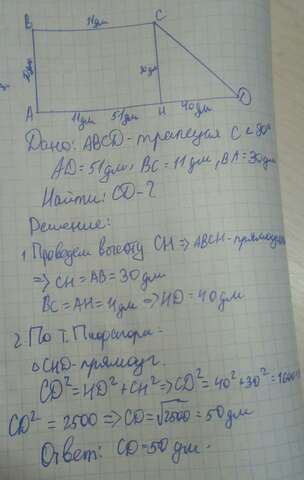 B 11дм C
30дм 30дм
A 11дм 51дм H 40дм D
Дано: ABCD-трапеция
AD=51дм, BC=11дм, BA=30дм
Найти: CD-?
Решение:
1. Проведём высоту CH => ABCH-прямоуг
=> CH=AB=30дм
BC=AH=11дм => HD=40дм
2. По Т. Пифагора-
△CHD-прямоуг.
CD²=HD²+CH² => CD²=40²+30²=1600
CD²=2500 => CD=√2500=50дм
Ответ: CD=50дм.